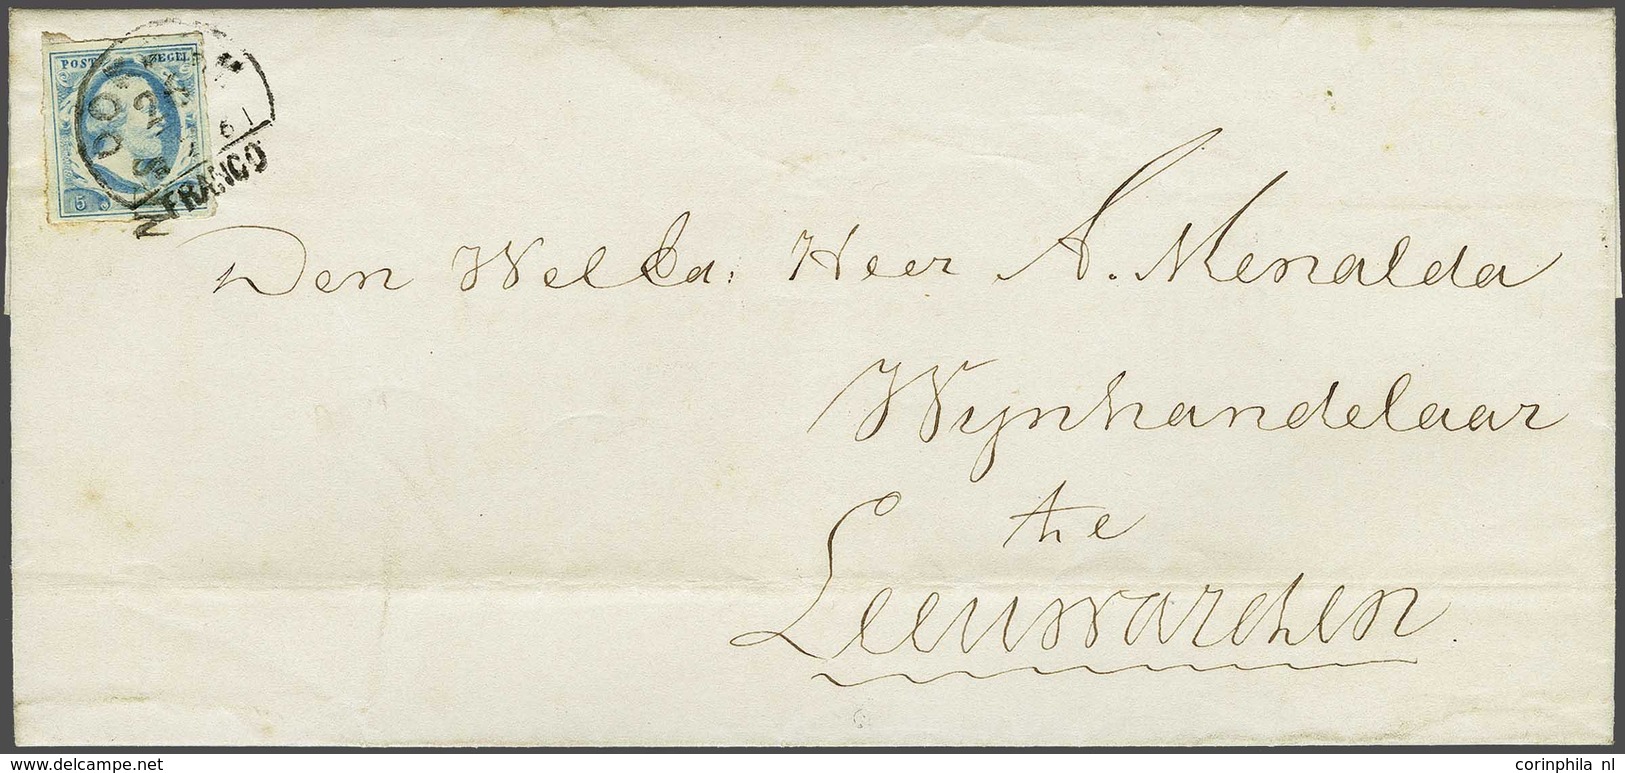 POST ZEGEL
5
61
FRANCO
Den WelEd: Heer A. Menalda
Wynhandelaar
te
Leeuwarden.
delcampe.net
corinphila nl